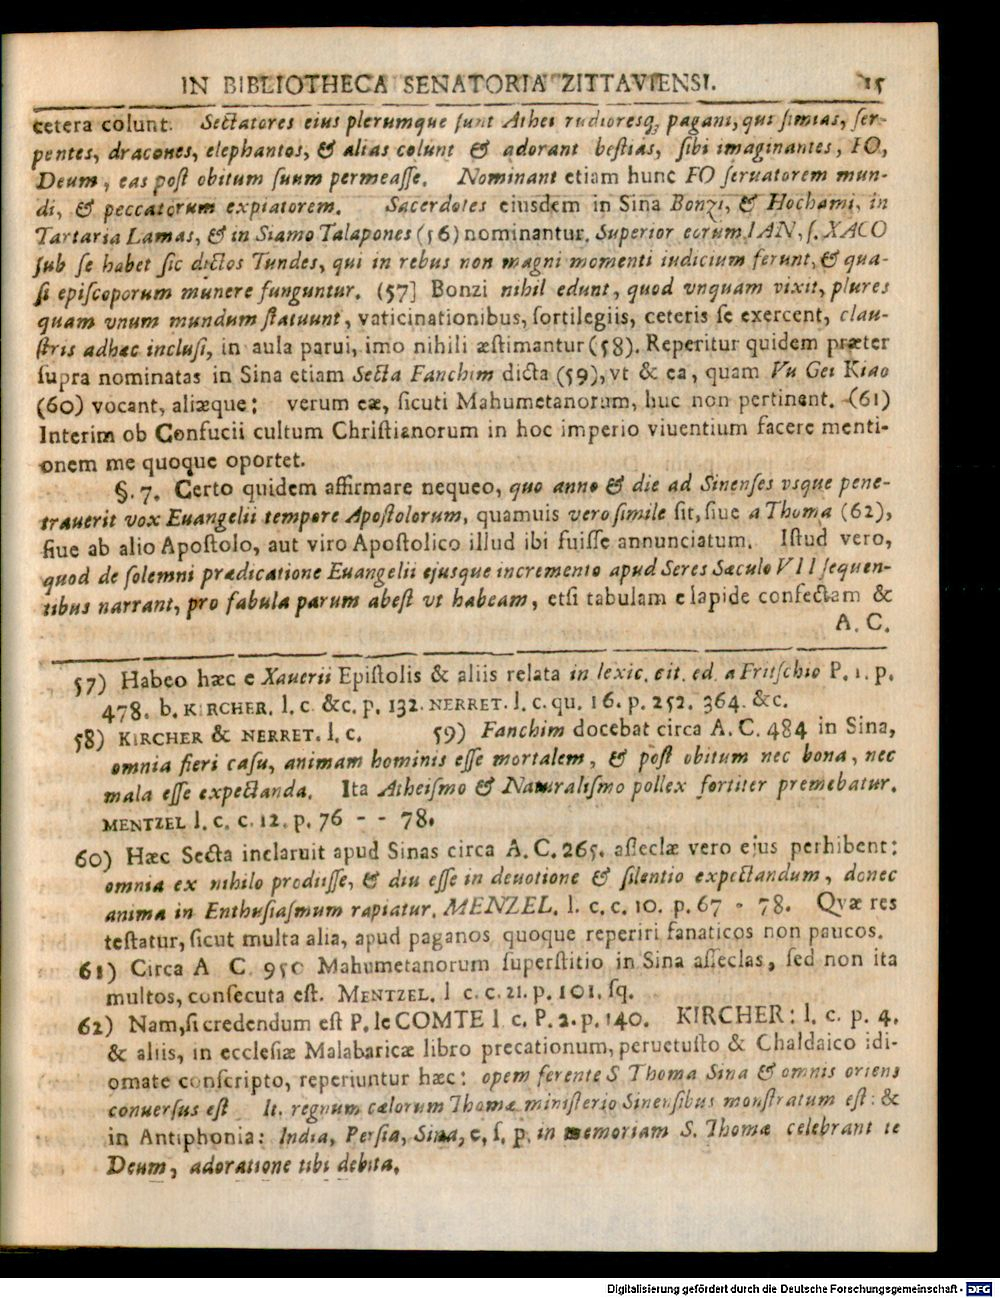 IN BIBLIOTHECA SENATORIA ZITTAVIENSI. 15
cetera colunt. Sectatores eius plerumque ſunt Athei rudioresq; pagani, qui ſimias, ſer-
pentes, dracones, elephantos, & alias colunt & adorant beſtias, ſibi imaginantes, FO,
Deum, eas poſt obitum ſuum permeaſſe. Nominant etiam hunc FO ſeruatorem mun-
di, & peccatorum expiatorem. Sacerdotes eiusdem in Sina Bonzi, & Hochami, in
Tartaria Lamas, & in Siamo Talapones (56) nominantur. Superior eorum IAN, ſ. XACO
ſub ſe habet ſic dictos Tundes, qui in rebus non magni momenti iudicium ferunt, & qua-
ſi epiſcoporum munere funguntur. (57] Bonzi nihil edunt, quod vnquam vixit, plures
quam vnum mundum ſtatuunt, vaticinationibus, ſortilegiis, ceteris ſe exercent, clau-
ſtris adhæc incluſi, in aula parui, imo nihili æſtimantur (58). Reperitur quidem præter
ſupra nominatas in Sina etiam Secta Fanchim dicta (59), vt & ea, quam Vu Gei Kiao
(60) vocant, aliæque: verum eæ, ſicuti Mahumetanorum, huc non pertinent. (61)
Interim ob Confucii cultum Chriſtianorum in hoc imperio viuentium facere menti-
onem me quoque oportet.
§. 7. Certo quidem affirmare nequeo, quo anno & die ad Sinenſes vsque pene-
trauerit vox Euangelii tempore Apoſtolorum, quamuis vero ſimile ſit, ſiue a Thoma (62),
ſiue ab alio Apoſtolo, aut viro Apoſtolico illud ibi fuiſſe annunciatum. Iſtud vero,
quod de ſolemni prædicatione Euangelii ejusque incremento apud Seres Sæculo VII ſequen-
tibus narrant, pro fabula parum abeſt vt habeam, etſi tabulam e lapide confectam &
A. C.
57) Habeo hæc e Xauerii Epiſtolis & aliis relata in lexic. cit. ed. a Fritſchio P. 1. p.
478. b. KIRCHER. l. c. &c. p. 132. NERRET. l. c. qu. 16. p. 252. 364. &c.
58) KIRCHER & NERRET. l. c. 59) Fanchim docebat circa A. C. 484 in Sina,
omnia fieri caſu, animam hominis eſſe mortalem, & poſt obitum nec bona, nec
mala eſſe expectanda. Ita Atheiſmo & Naturaliſmo pollex fortiter premebatur.
MENTZEL l. c. c. 12. p. 76 - - 78.
60) Hæc Secta inclaruit apud Sinas circa A. C. 265. aſſeclæ vero ejus perhibent:
omnia ex nihilo prodiiſſe, & diu eſſe in deuotione & ſilentio expectandum, donec
anima in Enthuſiaſmum rapiatur. MENZEL. l. c. c. 10. p. 67 - 78. Qvæ res
teſtatur, ſicut multa alia, apud paganos quoque reperiri fanaticos non paucos.
61) Circa A C. 950 Mahumetanorum ſuperſtitio in Sina aſſeclas, ſed non ita
multos, conſecuta eſt. MENTZEL. l c. c. 21. p. 101. ſq.
62) Nam, ſi credendum eſt P. le COMTE l c. P. 2. p. 140. KIRCHER: l. c. p. 4.
& aliis, in eccleſiæ Malabaricæ libro precationum, peruetuſto & Chaldaico idi-
omate conſcripto, reperiuntur hæc: opem ferente S Thoma Sina & omnis oriens
conuerſus eſt It. regnum cælorum Thomæ miniſterio Sinenſibus monſtratum eſt: &
in Antiphonia: India, Perſia, Sina, c, ſ. p. in memoriam S. Thomæ celebrant te
Deum, adoratione tibi debita.
Digitalisierung gefördert durch die Deutsche Forschungsgemeinschaft - DFG